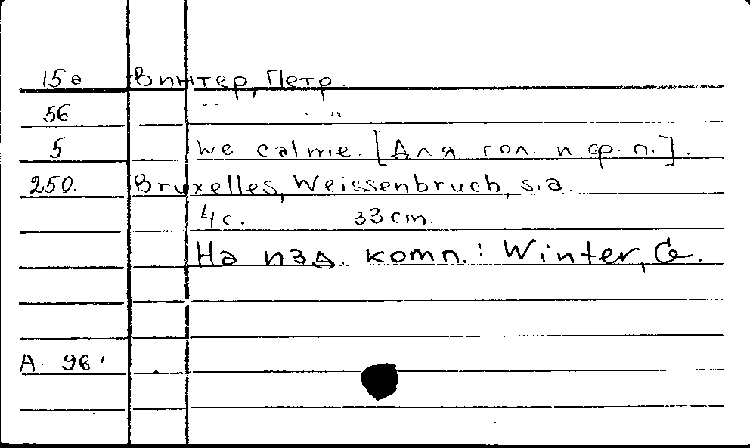 15а Винтер, Петр.
56 " "
5 We calme. [Для гол. и ф.п.].
250. Bruxelles, Weissenbruch, s.a.
4 с. 33 cm
На изд. комп.: Winter, G.
А 96